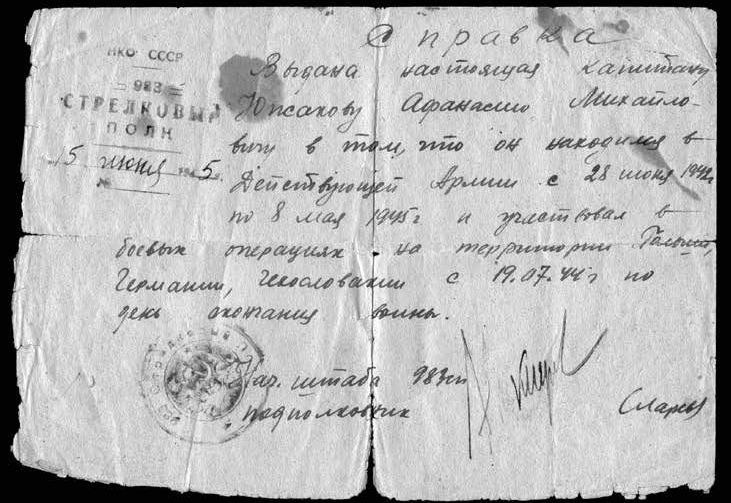 Справка
НКО СССР
983
СТРЕЛКОВЫЙ
ПОЛК
5 июня 1945г.
№
Выдана настоящая капитану
Юпсакову Афанасию Михайло-
вичу в том, что он находился в
Действующей Армии с 28 июня 1942г
по 8 мая 1945г и участвовал в
боевых операциях на территории Польши,
Германии, Чехословакии с 19.07.44г по
день окончания войны.
Нач. штаба 983сп
подполковник